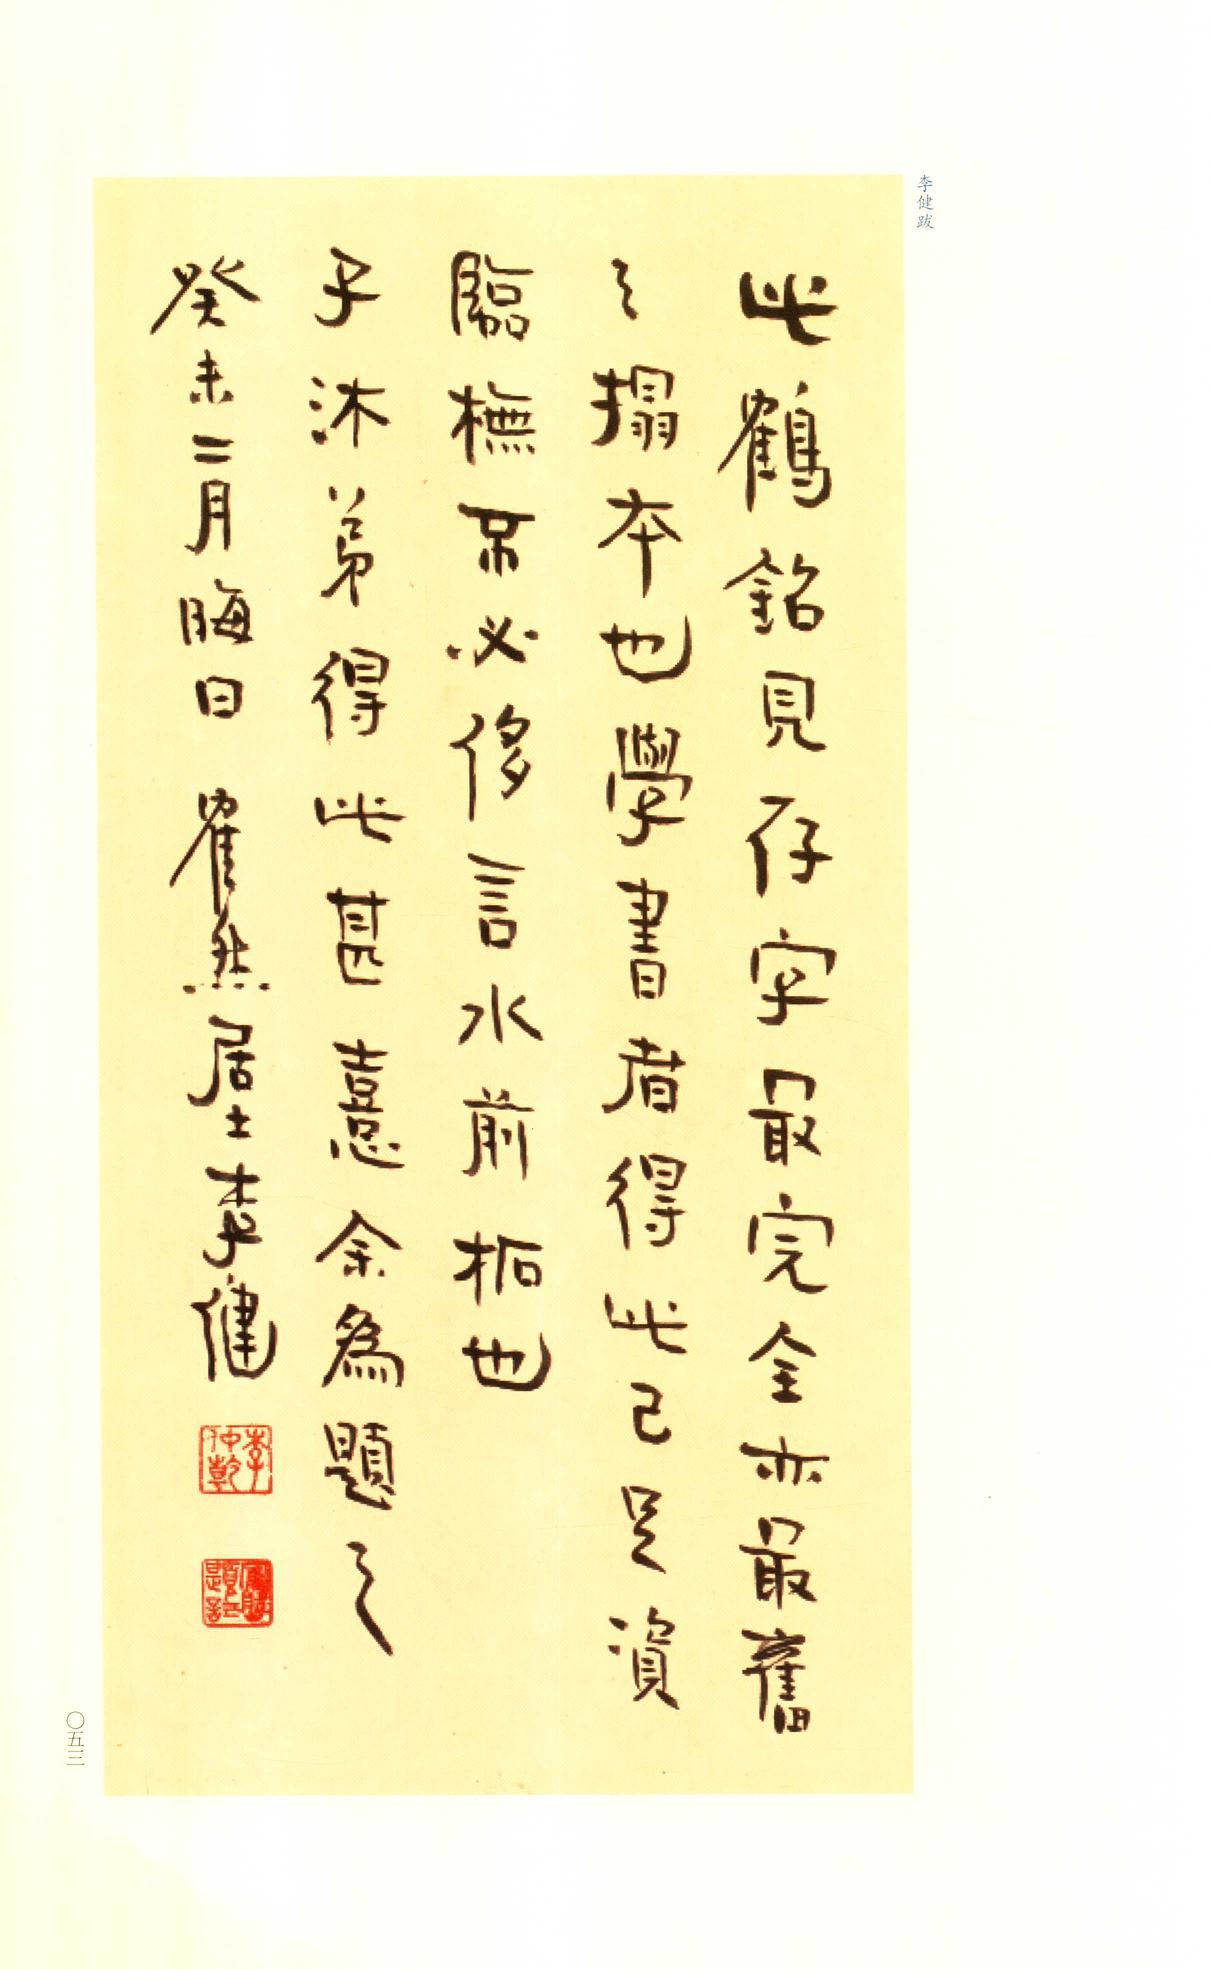 李健跋
此鶴銘見存字最完全亦最舊
之搨本也學書者得此已足資
臨橅不必侈言水前柘也
子沐弟得此甚憙余為題之
癸未二月晦日 隺然居士李健
李仲乾
〇五三